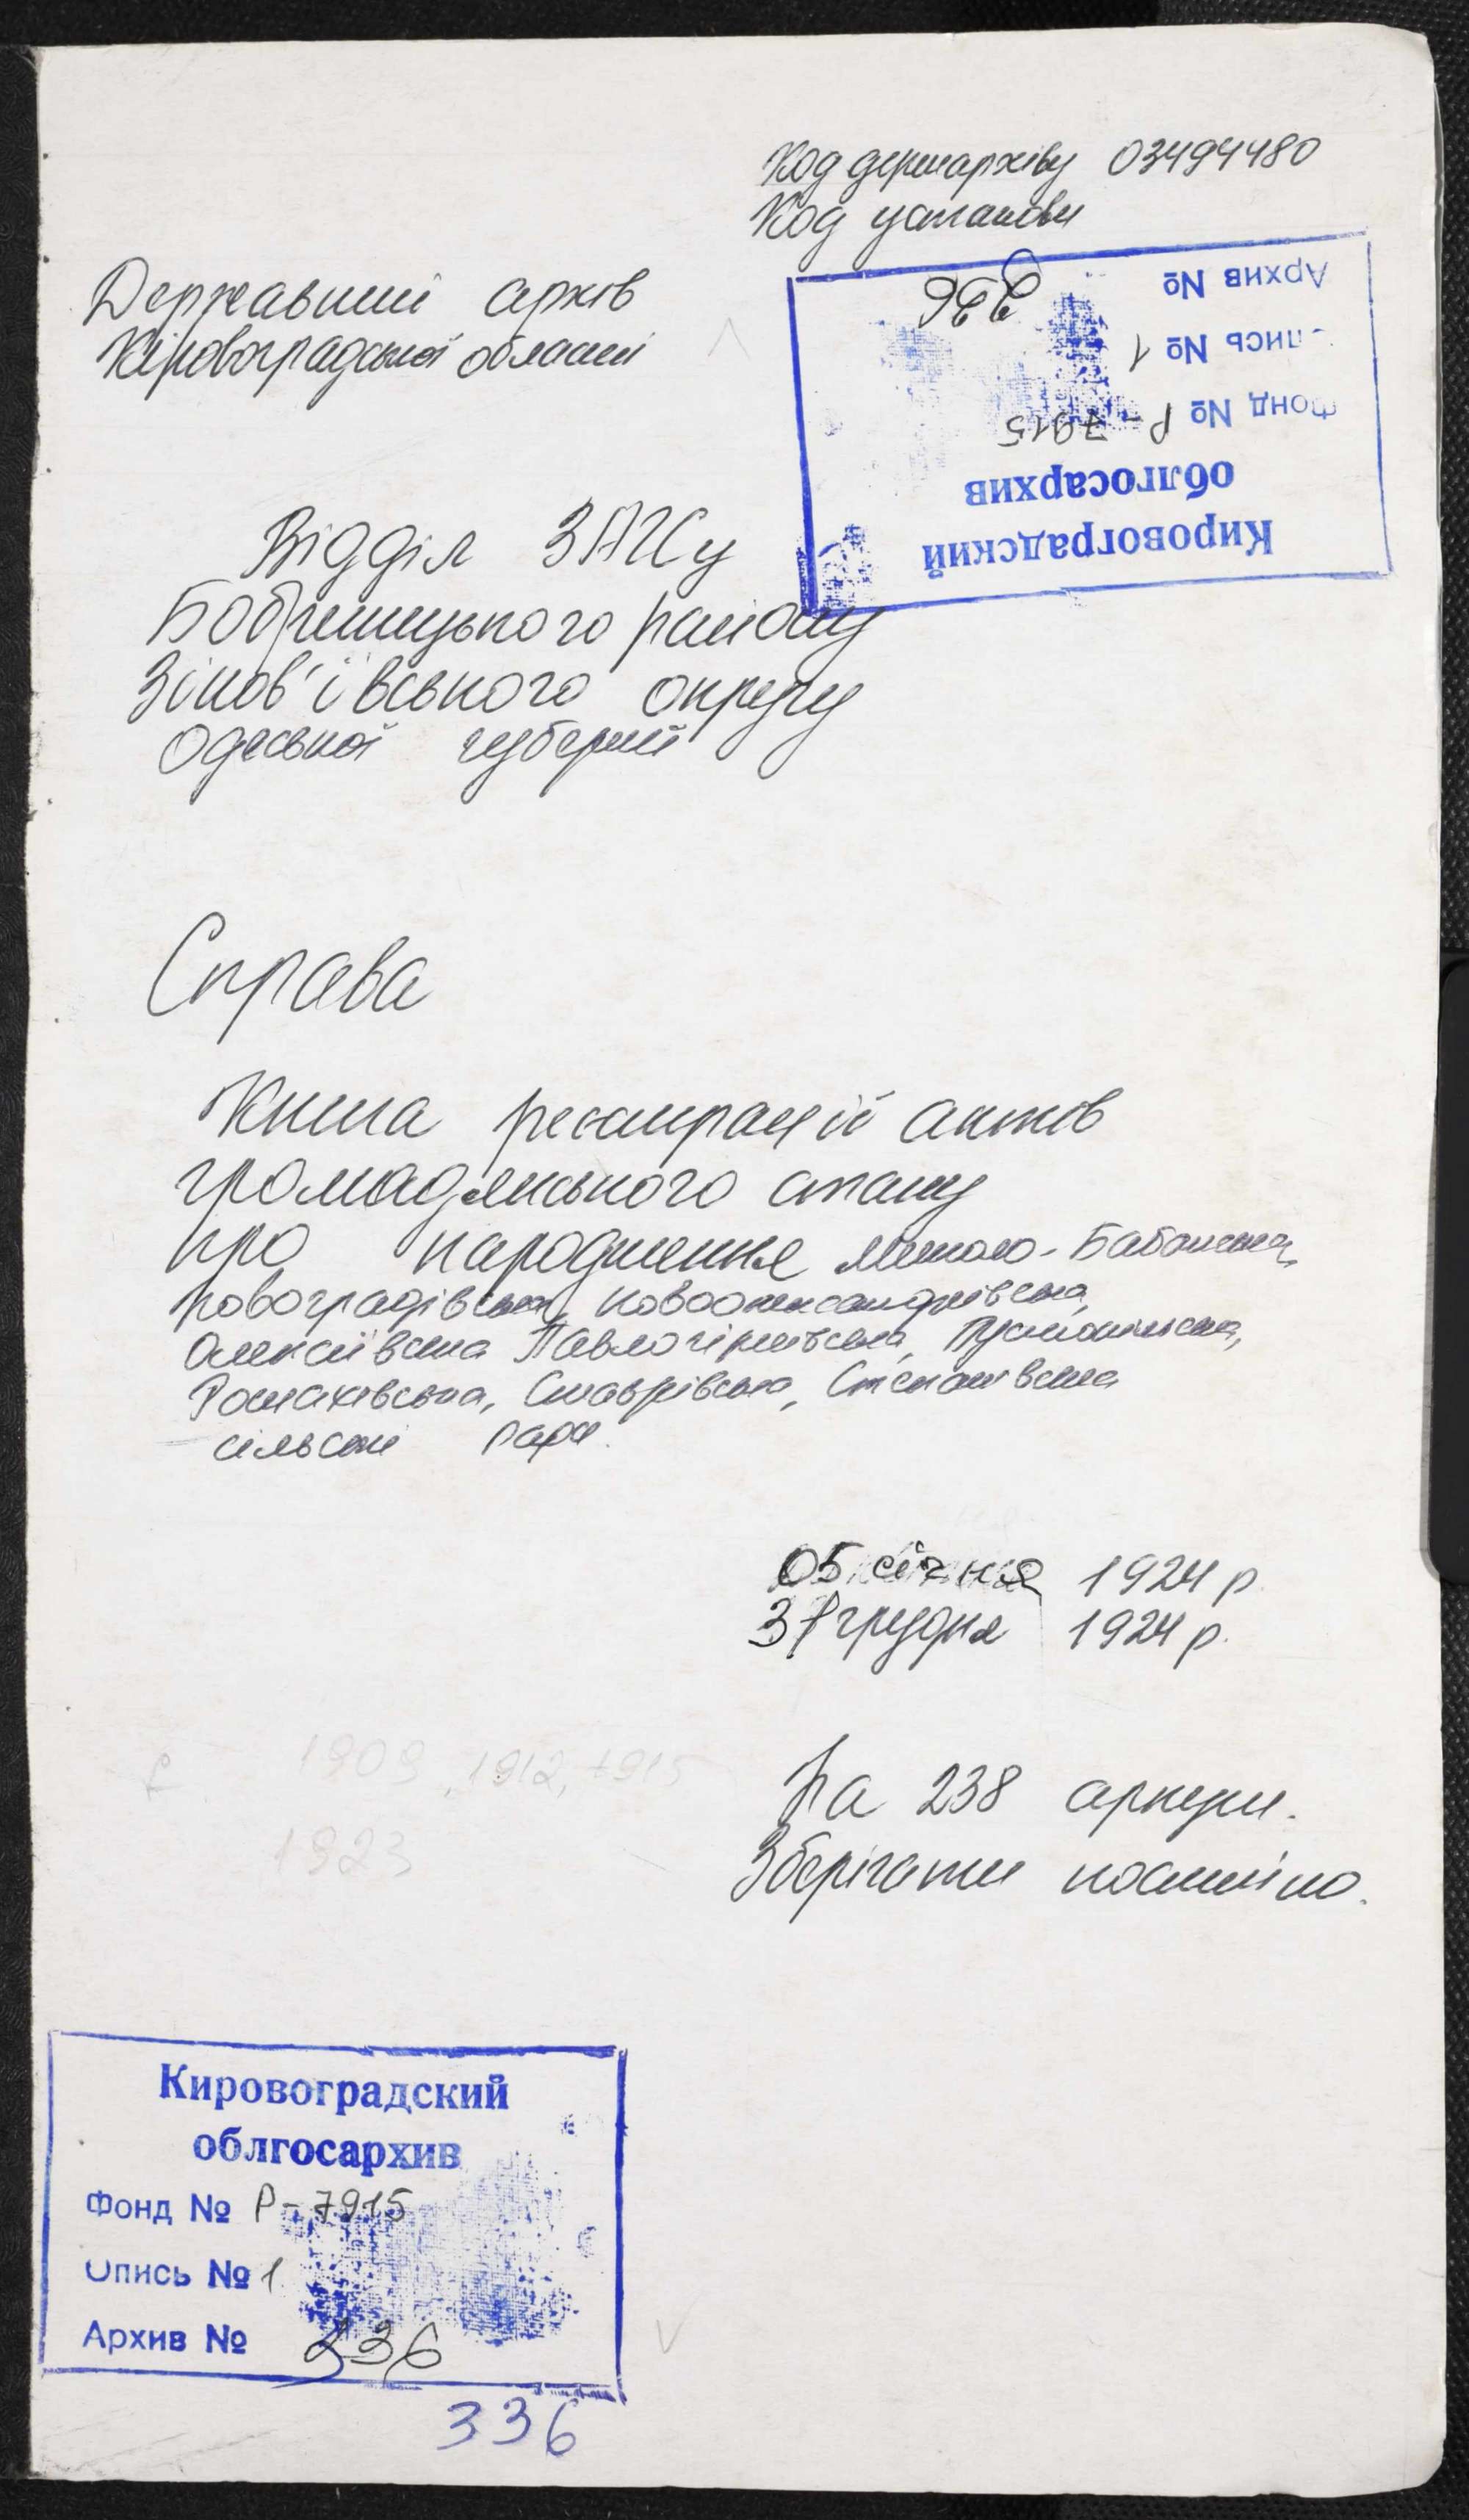 Код держархіву 03494480
Код установи
Державний архів
Кіровоградської області
Кировоградский
облгосархив
Фонд № Р-7915
Опись № 1
Архив № 336
Відділ ЗАГСу
Бобринецького району
Зінов'ївського округу
Одеської губернії
Справа
Книга реєстрації актів
громадянського стану
про народження
Новоградівська, Новоолександрівська,
Олексіївська
Рощахівська, Ставрівська, Степанівська
сільські ради.
05 січня 1924 р.
31 грудня 1924 р.
На 238 аркуш.
Зберігати постійно.
1909, 1912, 1915
1923
Кировоградский
облгосархив
Фонд № Р-7915
Опись № 1
Архив № 336
336